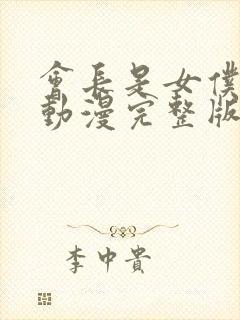 會長是女僕
動漫完整版
李中貴